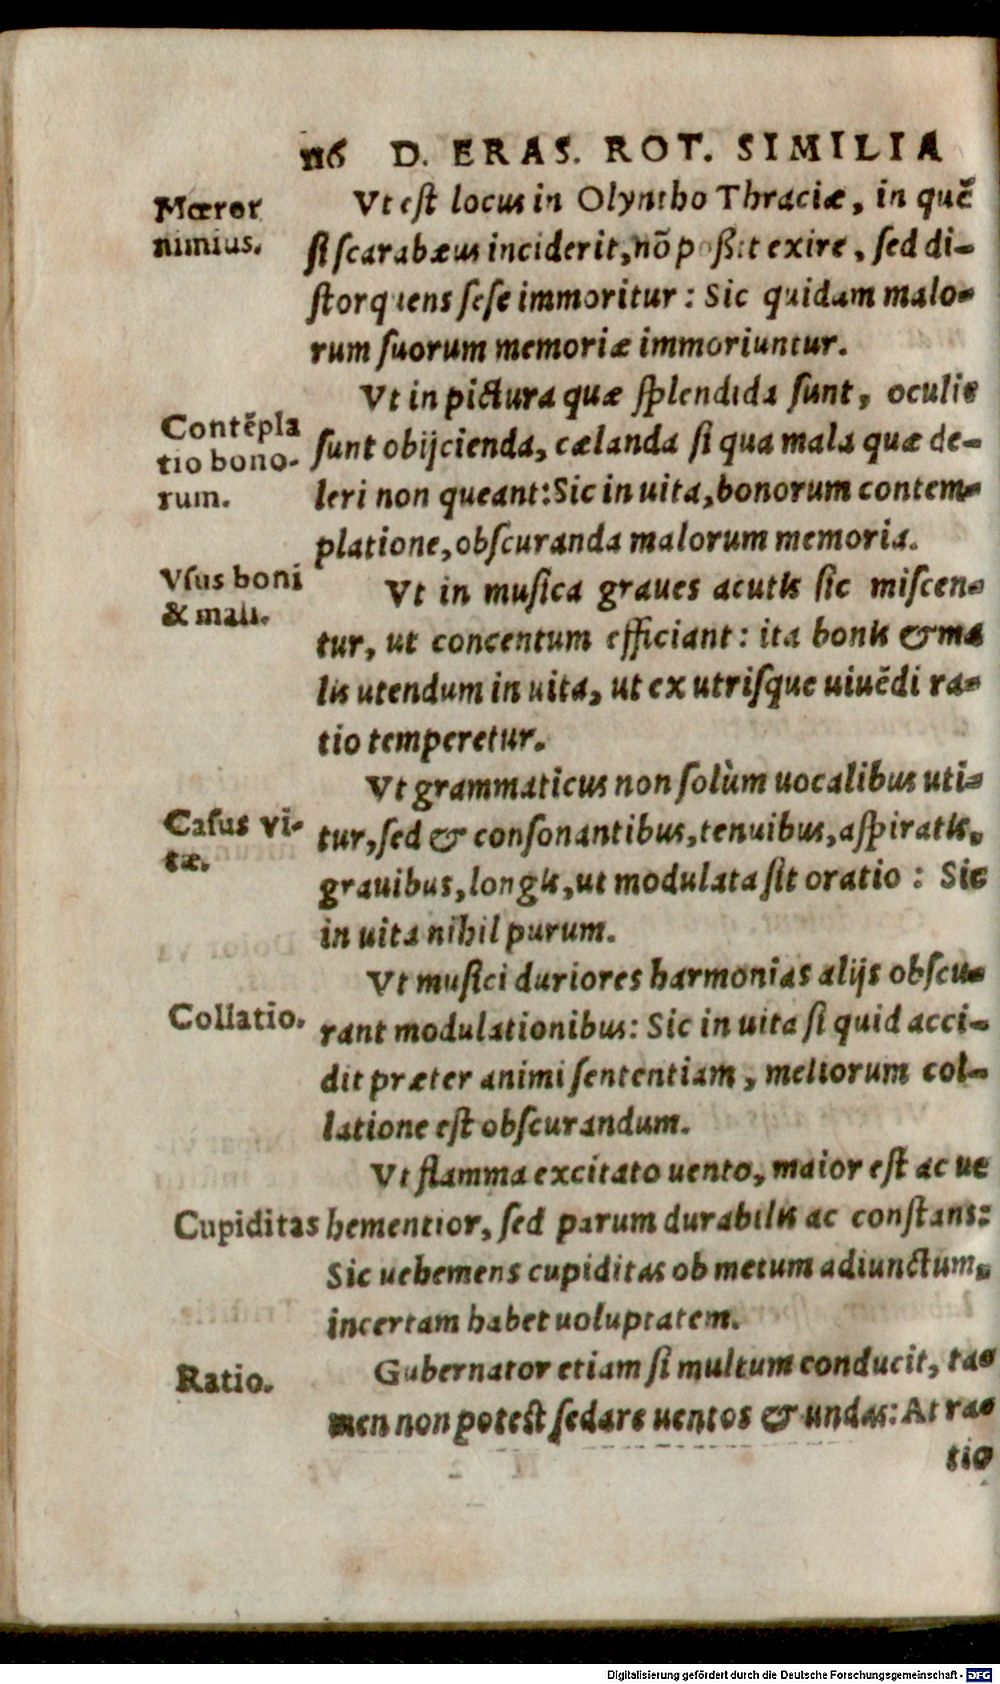 116 D. ERAS. ROT. SIMILIA
Mœror
nimius.
Vt est locus in Olyntho Thraciæ, in quē
si scarabæus inciderit, nō possit exire, sed di-
storquens sese immoritur: Sic quidam malo-
rum suorum memoriæ immoriuntur.
Contēpla
tio bono-
rum.
Vt in pictura quæ splendida sunt, oculis
sunt obijcienda, cælanda si qua mala quæ de-
leri non queant: Sic in uita, bonorum contem-
platione, obscuranda malorum memoria.
Vsus boni
& mali.
Vt in musica graues acutis sic miscen-
tur, ut concentum efficiant: ita bonis & ma
lis utendum in uita, ut ex utrisque uiuēdi ra-
tio temperetur.
Casus vi-
tæ.
Vt grammaticus non solùm uocalibus uti-
tur, sed & consonantibus, tenuibus, aspiratis,
grauibus, longis, ut modulata sit oratio: Sic
in uita nihil purum.
Collatio.
Vt musici duriores harmonias alijs obscu-
rant modulationibus: Sic in uita si quid acci-
dit præter animi sententiam, meliorum col-
latione est obscurandum.
Cupiditas
Vt flamma excitato uento, maior est ac ue
hementior, sed parum durabilis ac constans:
Sic uehemens cupiditas ob metum adiunctum,
incertam habet uoluptatem.
Ratio.
Gubernator etiam si multum conducit, ta-
men non potest sedare uentos & undas: At ra-
tio
Digitalisierung gefördert durch die Deutsche Forschungsgemeinschaft - DFG